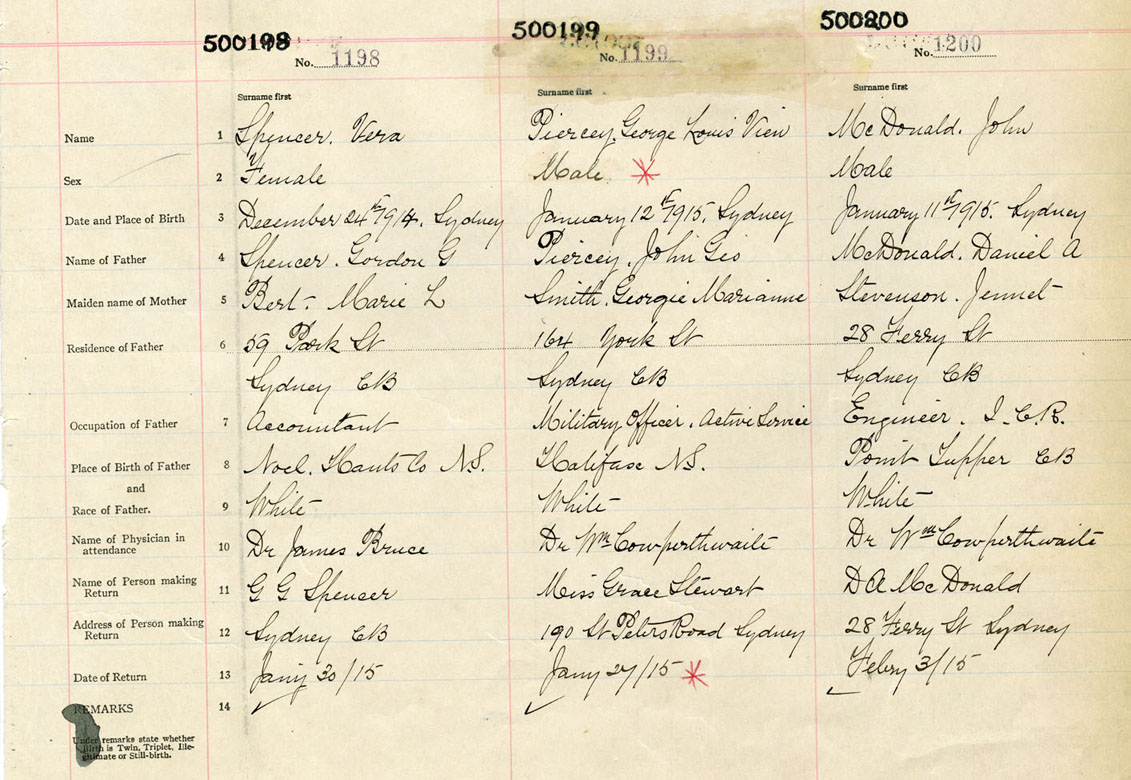 500198 500199 500200
No. 1198 No. 1199 No. 1200
Surname first Surname first Surname first
Name 1 Spencer. Vera Piercey. George Louis Vien McDonald. John
Sex 2 Female Male * Male
Date and Place of Birth 3 December 24th 1914. Sydney January 12th 1915. Sydney January 11th 1915. Sydney
Name of Father 4 Spencer. Gordon G Piercey. John Geo McDonald. Daniel A
Maiden name of Mother 5 Bert- Marie L Smith. Georgie Marianne Stevenson. Jennet
Residence of Father 6 59 Park St 164 York St 28 Ferry St
Sydney CB Sydney CB Sydney CB
Occupation of Father 7 Accountant Military Officer. Active Service Engineer. I.C.R.
Place of Birth of Father 8 Noel. Hants Co N.S. Halifax N.S. Point Tupper CB
and
Race of Father. 9 White White White
Name of Physician in attendance 10 Dr James Bruce Dr Wm Cowperthwaite Dr Wm Cowperthwaite
Name of Person making Return 11 G G Spencer Miss Grace Stewart D A McDonald
Address of Person making Return 12 Sydney CB 190 St Peters Road Sydney 28 Ferry St Sydney
Date of Return 13 Jany 30/15 Jany 27/15 * Febry 3/15
REMARKS 14
Under remarks state whether
Birth is Twin, Triplet, Ille-
gitimate or Still-birth.